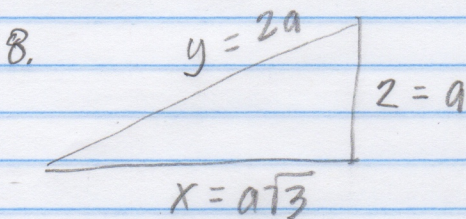 8.
y = 2a
2 = a
x = a√3